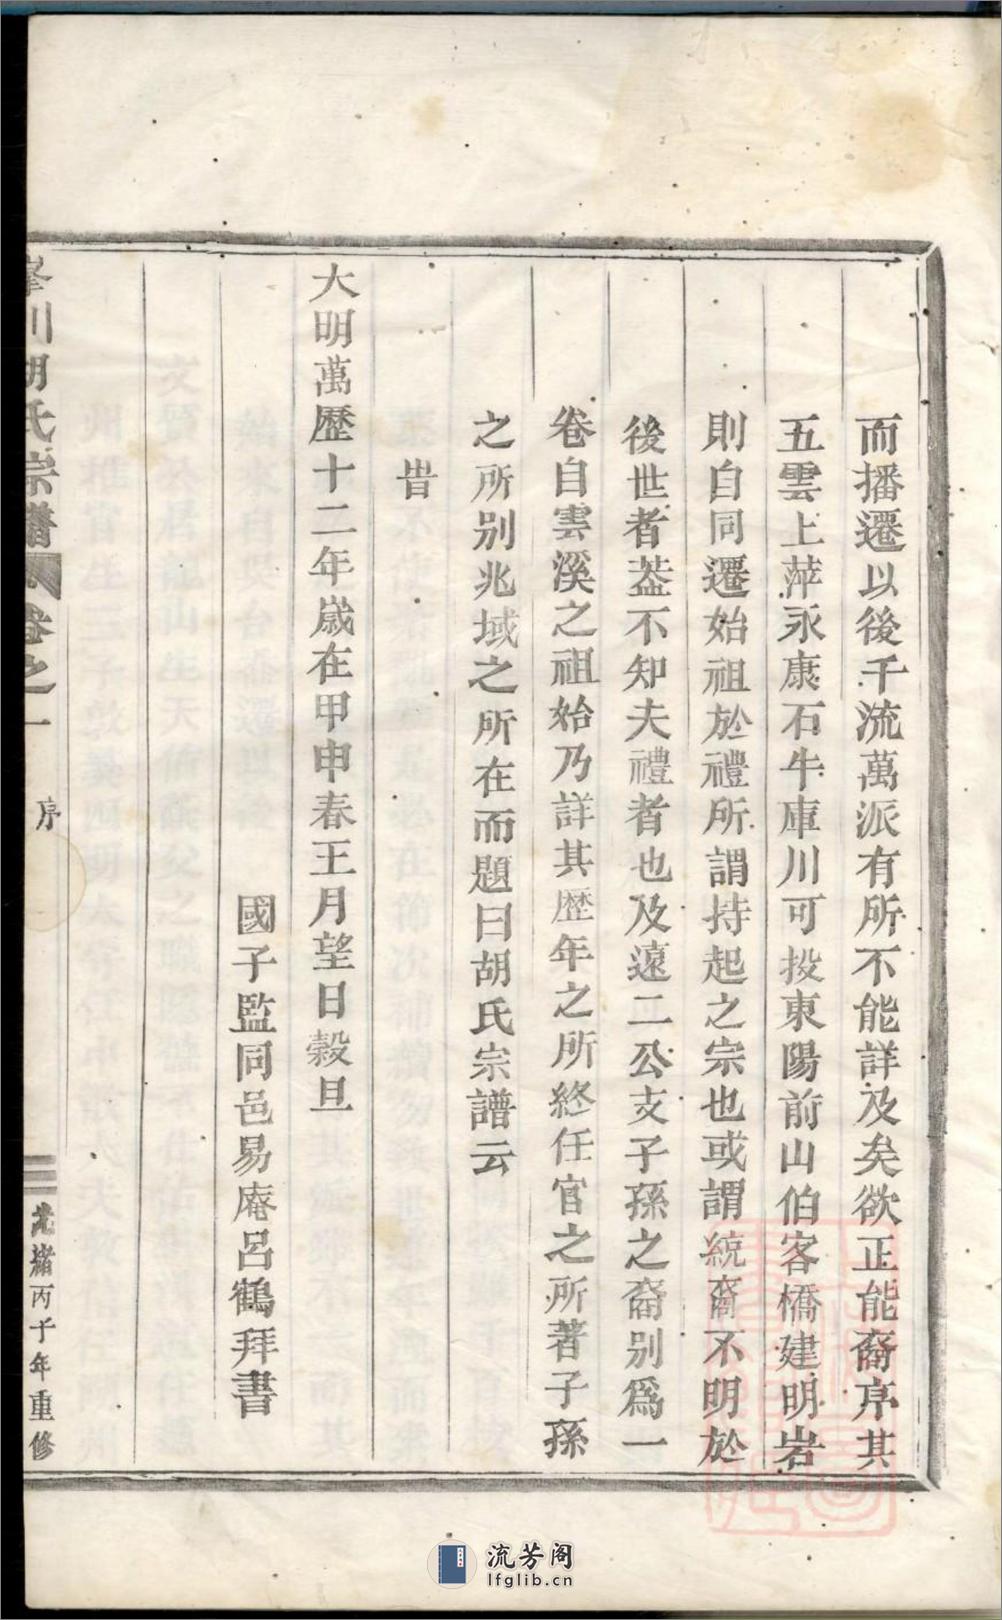 而播遷以後千流萬派有所不能詳及矣欲正能裔序其
五雲上萍永康石牛庫川可投東陽前山伯客橋建明岩
則自同遷始祖於禮所謂持起之宗也或謂統裔不明於
後世者葢不知夫禮者也及遠二公支子孫之裔別爲一
卷自雲溪之祖始乃詳其歷年之所終任官之所著子孫
之所別兆域之所在而題曰胡氏宗譜云
旹
大明萬歷十二年歲在甲申春王月望日穀旦
國子監同邑易庵呂鶴拜書
峯川胡氏宗譜 卷之一 序 光緒丙子年重修
流芳阁
lfglib.cn